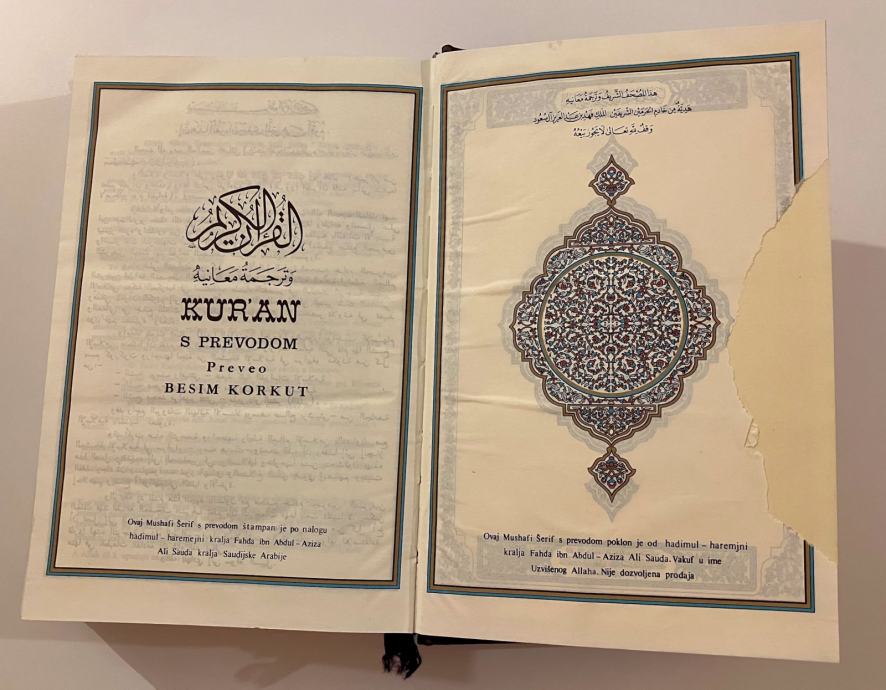 القرآن الكريم
وَتَرجَمَةُ مَعَانيهْ
KUR'AN
S PREVODOM
Preveo
BESIM KORKUT
Ovaj Mushafi Šerif s prevodom štampan je po nalogu
hadimul – haremejni kralja Fahda ibn Abdul – Aziza
Ali Sauda kralja Saudijske Arabije
هذا المُصْحَف الشَّريف وَتَرجَمَةُ مَعَانيهْ
هَديَّةٌ مِن خَادِم الحَرَمَين الشَّريفَين الملك فَهْد بن عَبد العَزيز آل سُعُود
وَقْفٌ لله تعَالى لَا يَجُوز بَيْعُهُ
Ovaj Mushafi Šerif s prevodom poklon je od hadimul – haremjni
kralja Fahda ibn Abdul – Aziza Ali Sauda. Vakuf u ime
Uzvišenog Allaha. Nije dozvoljena prodaja